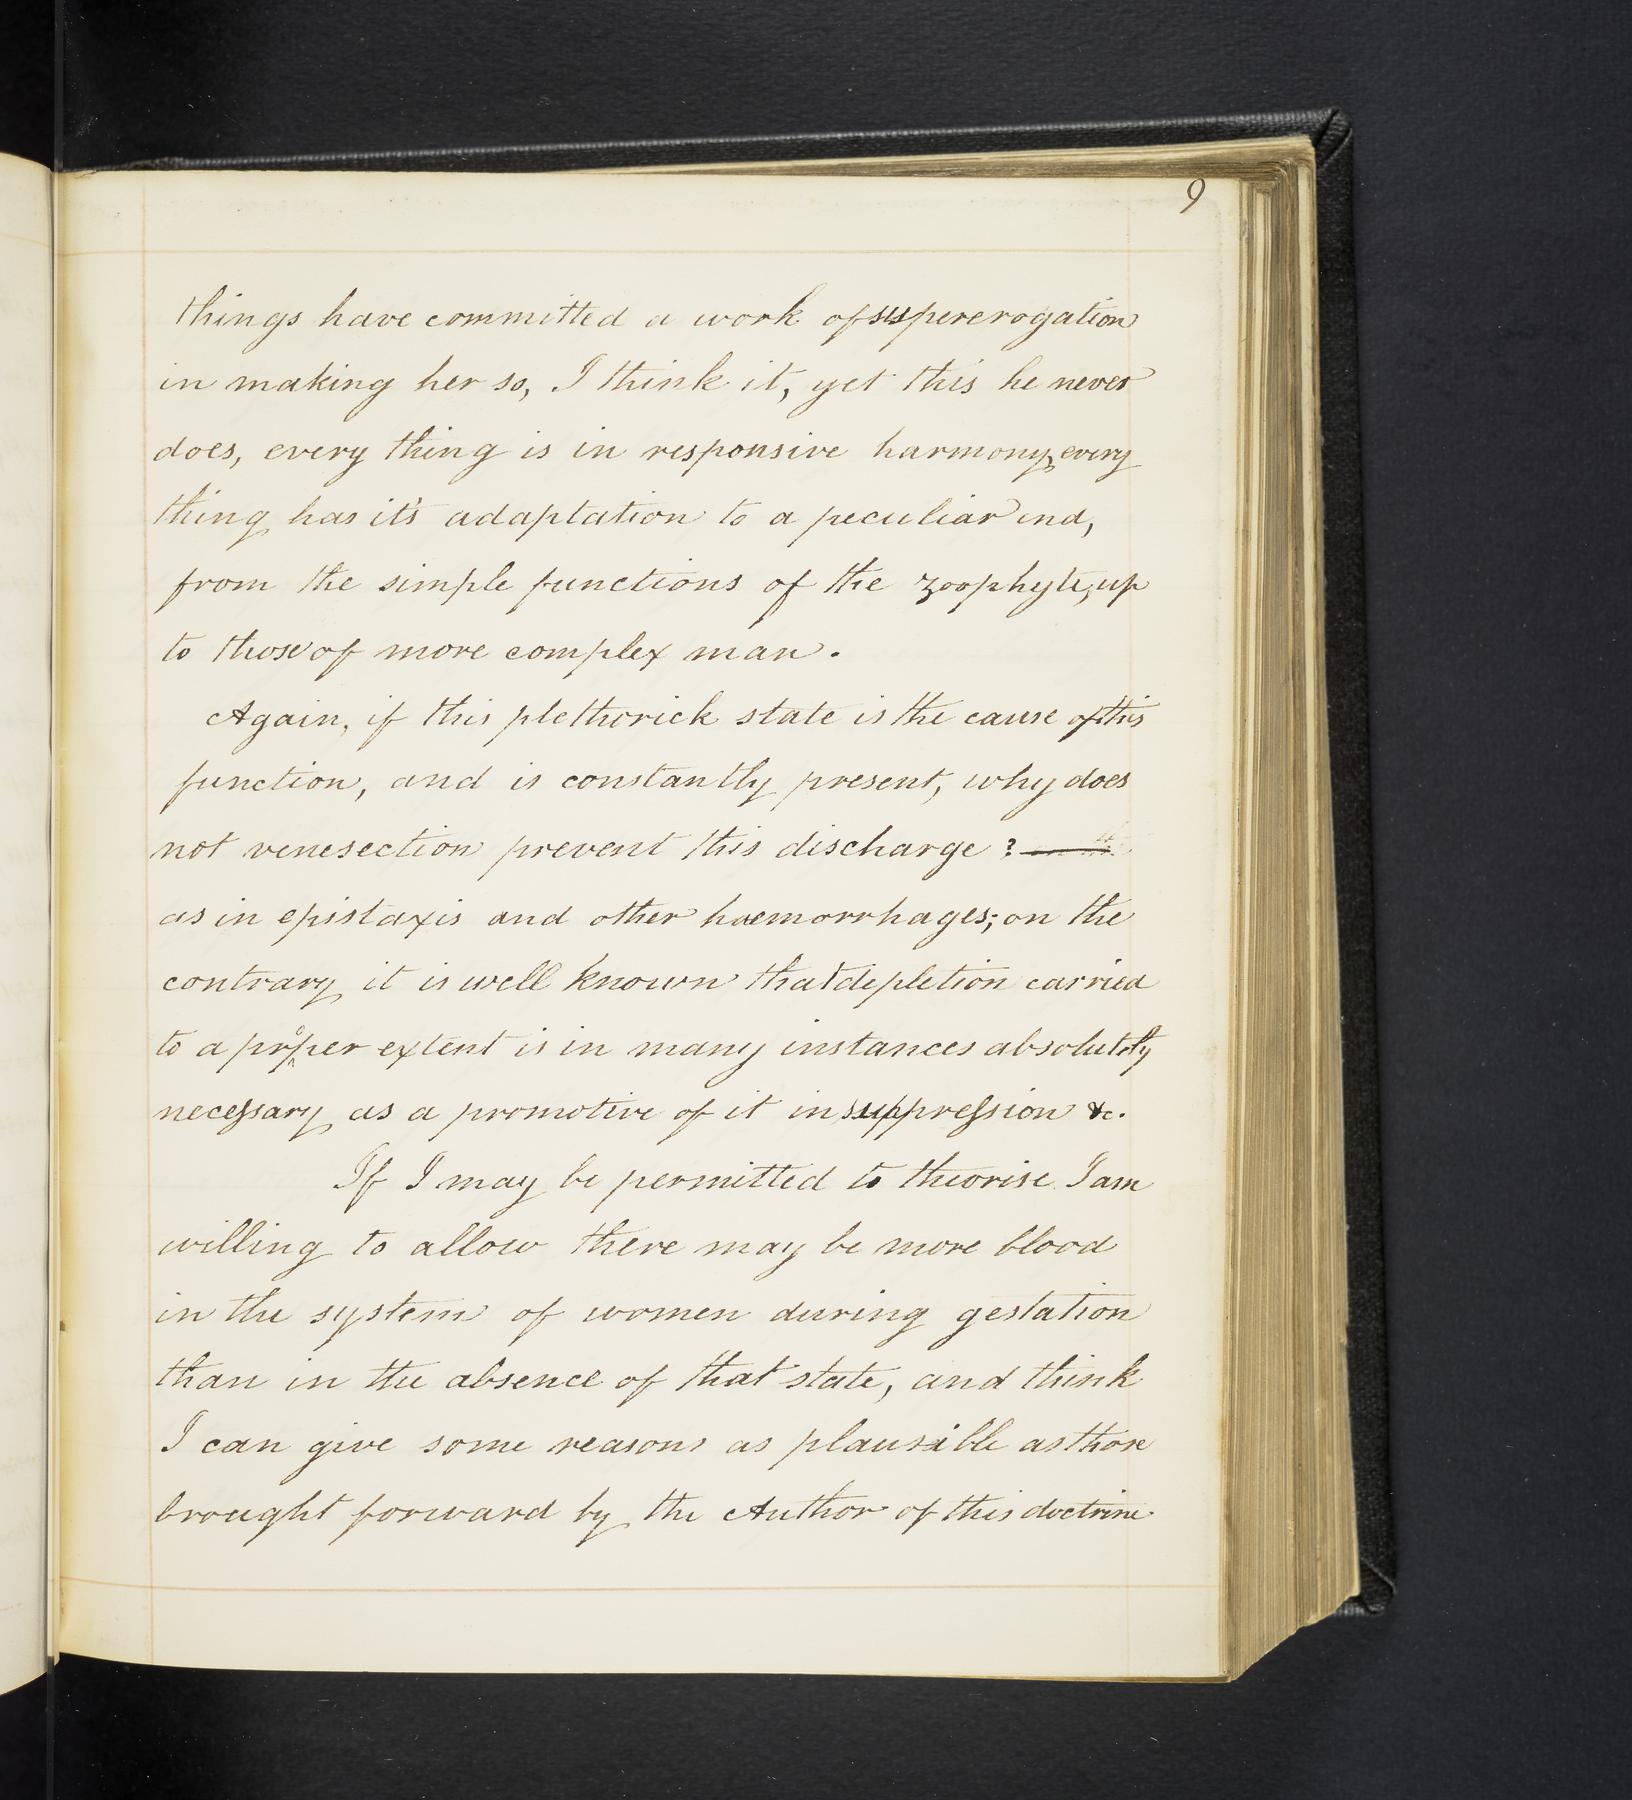 9
things have committed a work of supererogation
in making her so, I think it, yet this he never
does, every thing is in responsive harmony, every
thing has it's adaptation to a peculiar end,
from the simple functions of the zoophyte, up
to those of more complex man.
Again, if this plethorick state is the cause of this
function, and is constantly present, why does
not venesection prevent this discharge?
as in epistaxis and other haemorrhages; on the
contrary it is well known that depletion carried
to a proper extent is in many instances absolutely
necessary as a promotive of it in suppression &c.
If I may be permitted to theorise I am
willing to allow there may be more blood
in the system of women during gestation
than in the absence of that state, and think
I can give some reasons as plausible as those
brought forward by the Author of this doctrine